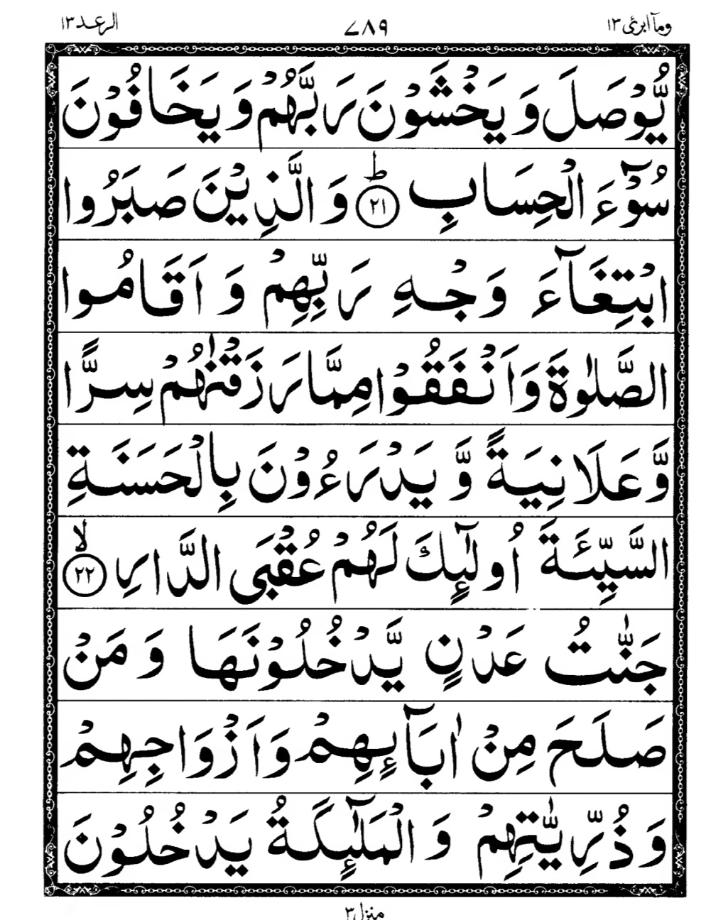 وما ابرئ ١٣ ٧٨٩ الرعد ١٣
يُّوْصَلَ وَ يَخْشَوْنَ رَبَّهُمْ وَ يَخَافُوْنَ
سُوْٓءَ الْحِسَابِ ؕ﴿۲۱﴾ وَ الَّذِيْنَ صَبَرُوا
ابْتِغَآءَ وَجْهِ رَبِّهِمْ وَ اَقَامُوا
الصَّلٰوةَ وَ اَنْفَقُوْا مِمَّا رَزَقْنٰهُمْ سِرًّا
وَّ عَلَانِيَةً وَّ يَدْرَءُوْنَ بِالْحَسَنَةِ
السَّيِّئَةَ اُولٰٓئِكَ لَهُمْ عُقْبَى الدَّارِ ۙ﴿۲۲﴾
جَنّٰتُ عَدْنٍ يَّدْخُلُوْنَهَا وَ مَنْ
صَلَحَ مِنْ اٰبَآئِهِمْ وَ اَزْوَاجِهِمْ
وَ ذُرِّيّٰتِهِمْ وَ الْمَلٰٓئِكَةُ يَدْخُلُوْنَ
منزل ٣